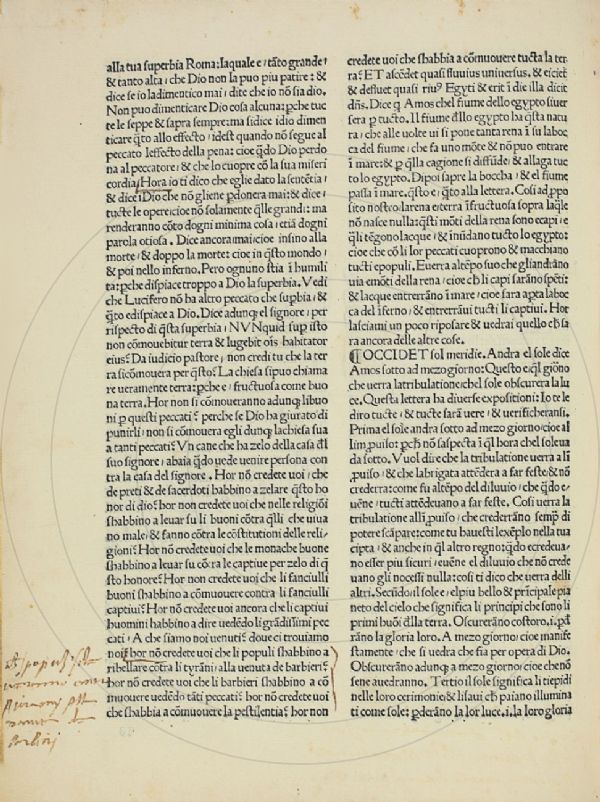 alla tua superbia Roma: laquale e / tãto grande /
& tanto alta / che Dio non la puo piu patire: &
dice se io ladimentico mai / dite che io nõ sia dio.
Non puo dimenticare Dio cosa alcuna: pche tuc
te le seppe & sapra sempre: ma sidice idio dimen
ticare q̃to allo effecto / idest quando nõ segue al
peccato leffecto della pena: cioe q̃do Dio perdo
na al peccatore / & che lo cuopre cõ la sua miseri
cordia. Hora io ti dico che eglie dato la sentẽtia /
& dice: Dio che nõ gliene pdonera mai: & dice /
tucte le opere: cioe nõ solamente q̃lle grandi: ma
renderanno cõto dogni minima cosa / etiã dogni
parola otiosa. Dice ancora mai: cioe insino alla
morte / & doppo la morte: cioe in q̃sto mondo /
& poi nello inferno. Pero ognuno stia i humili
ta: pche dispiace troppo a Dio la superbia. Vedi
che Lucifero nõ ha altro peccato che supbia / &
q̃to edispiace a Dio. Dice adunq; el signore / per
rispetto di q̃sta superbia / NVNquid sup isto
non cõmouebitur terra & lugebit ois habitator
eius? Da iudicio pastore / non credi tu che la ter
ra sicõmouera per q̃sto? La chiesa sipuo chiama
re ueramente terra: pche e / fructuosa come buo
na terra. Hor non si cõmoueranno adunq; libuo
ni p questi peccati? perche se Dio ha giurato di
punirli / non si cõmouera egli dunq; la chiesa sua
a tanti peccati? Vn cane che ha zelo della casa dl
suo signore / abaia q̃do uede uenire persona con
tra la casa del signore. Hor nõ credete uoi / che
de preti & de sacerdoti habbino a zelare q̃sto ho
nor di dio? hor non credete uoi che nelle religiõi
shabbino a leuar su li buoni cõtra q̃lli che uiua
no male / & fanno cõtra le cõstitutioni delle reli /
gioni? Hor nõ credete uoi che le monache buone
shabbino a lear su cõtra le captiue per zelo di q̃
sto honore? Hor non credete uoi che li fanciulli
buoni shabbino a cõmouere contra li fanciulli
captiui? Hor nõ credete uoi ancora che li captiui
huomini habbino a dire uedẽdo li grãdissimi pec
cati / A che siamo noi uenuti? doue ci trouiamo
noi? hor nõ credete uoi che li populi shabbino a
ribellare cõtra li tyrãni / alla uenuta de barbieri?
hor nõ credete uoi che li barbieri shabbino a cõ
mouere uedẽdo tãti peccati? hor nõ credete uoi
che shabbia a cõmouere la pestilentia? hor non
credete uoi che shabbia a cõmouere tucta la ter
ra? ET ascẽdet quasi fluuius uniuersus. & eiciet
& defluet quasi riu⁹ Egypti & erit ĩ die illa dicit
dñs. Dice q̃ Amos chel fiume dello egypto siuer
sera p tucto. Il fiume dllo egypto ha q̃sta natu
ra / che alle uolte ui si pone tanta rena ĩ su la boc
ca del fiume / che fa uno mõte & nõ puo entrare
ĩ mare: & p q̃lla cagione si diffũde / & allaga tuc
to lo egypto. Dipoi sapre la boccha / & el fiume
passa ĩ mare. q̃sto e / q̃to alla lettera. Cosi ad ppo
sito nostro: larena e / terra ĩfructuosa sopra laq̃le
nõ nasce nulla: q̃sti mõti della rena sono ecapi / e
q̃li tẽgono lacque / & inũdano tucto lo egypto:
cioe che cõ li lor peccati cuoprono & macchiano
tucti epopuli. Euerra altẽpo suo che gliandrãno
uia emõti della rena / cioe ch̃ li capi sarãno spẽti:
& lacque entrerrãno ĩ mare / cioe sara apta laboc
ca del ĩferno / & entrerrãui tucti li captiui. Hor
lasciami un poco riposare & uedrai quello ch̃ sa
ra ancora delle altre cose.
¶OCCIDET sol meridie. Andra el sole dice
Amos sotto ad mezo giorno: Questo e q̃l giõno
che uerra latribulatione: chel sole obscurera la luc
ce. Questa lettera ha diuerse expositioni: Io te le
diro tucte / & tucte sarã uere / & uerificheransi.
Prima el sole andra sotto ad mezo giorno / cioe al
lim puiso: pch̃ nõ saspecta ĩ q̃l hora chel sole ua
da sotto. Vuol dire che la tribulatione uerra a lĩ
puiso / & che labrigata attẽdera a far feste & nõ
crederra: come fu altẽpo del diluuio / che q̃do e /
uẽne / tucti attẽdeuano a far feste. Cosi uerra la
tribulatione alli puiso / che crederrãno semp di
potere scãpare: come tu bauesti lexẽplo nella tua
cipta / & anche in q̃l altro regno: q̃do ecredeua /
no esser piu sicuri / euẽne el diluuio che nõ crede
uano gli nocessi nulla: cosi ti dico che uerra delli
altri. Secũdo: il sole e / el piu bello & prĩcipale pia
neto del cielo che significa li prĩcipi che sono li
primi buoi dlla terra. Oscurerãno costoro. i. pde
rãno la gloria loro. A mezo giorno / cioe manife
stamente / che si uedra che fia per opera di Dio.
Obscurerãno adunq; a mezo giorno / cioe che nõ
sene auedranno. Tertio il sole significa li tiepidi
nelle loro cerimonie / & li saui ch̃ paiano illumina
ti come sole: pderãno la lor luce. i. la loro gloria